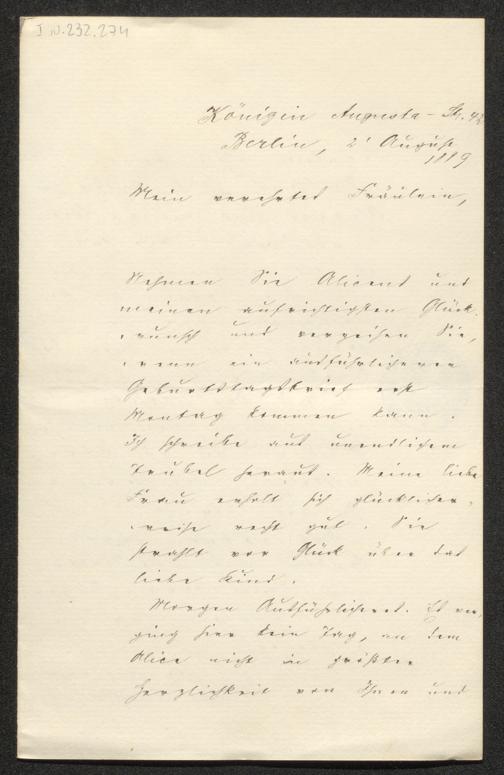 I N. 232.274
Königin Augusta-Str. 42
Berlin, 2' August
1889
Mein verehrtes Fräulein,
Nehmen Sie Alicens und
meinen aufrichtigsten Glück-
wunsch und verzeihen Sie,
wenn ein ausführlicherer
Geburtstagsbrief erst
Montag kommen kann.
Ich schreibe aus unendlichem
Trubel heraus. Meine liebe
Frau erholt sich glücklicher-
weise recht gut. Sie
strahlt vor Glück über das
liebe Kind.
Morgen Ausführlicheres. Es ver-
ging hier kein Tag, an dem
Alice nicht in größter
Herzlichkeit von Ihnen und